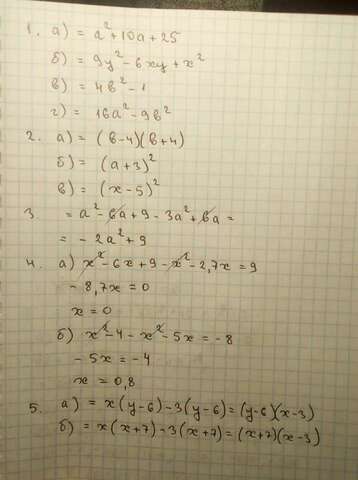 1. а) = a² + 10a + 25
б) = 9y² - 6xy + x²
в) = 4b² - 1
г) = 16a² - 9b²
2. а) = (b-4)(b+4)
б) = (a+3)²
в) = (x-5)²
3. = a² - 6a + 9 - 3a² + 6a =
= - 2a² + 9
4. а) x² - 6x + 9 - x² - 2,7x = 9
- 8,7x = 0
x = 0
б) x² - 4 - x² - 5x = -8
- 5x = -4
x = 0,8
5. а) = x(y-6) - 3(y-6) = (y-6)(x-3)
б) = x(x+7) - 3(x+7) = (x+7)(x-3)